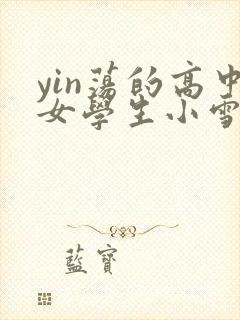 yin蕩的高中
女學生小雪
藍寶